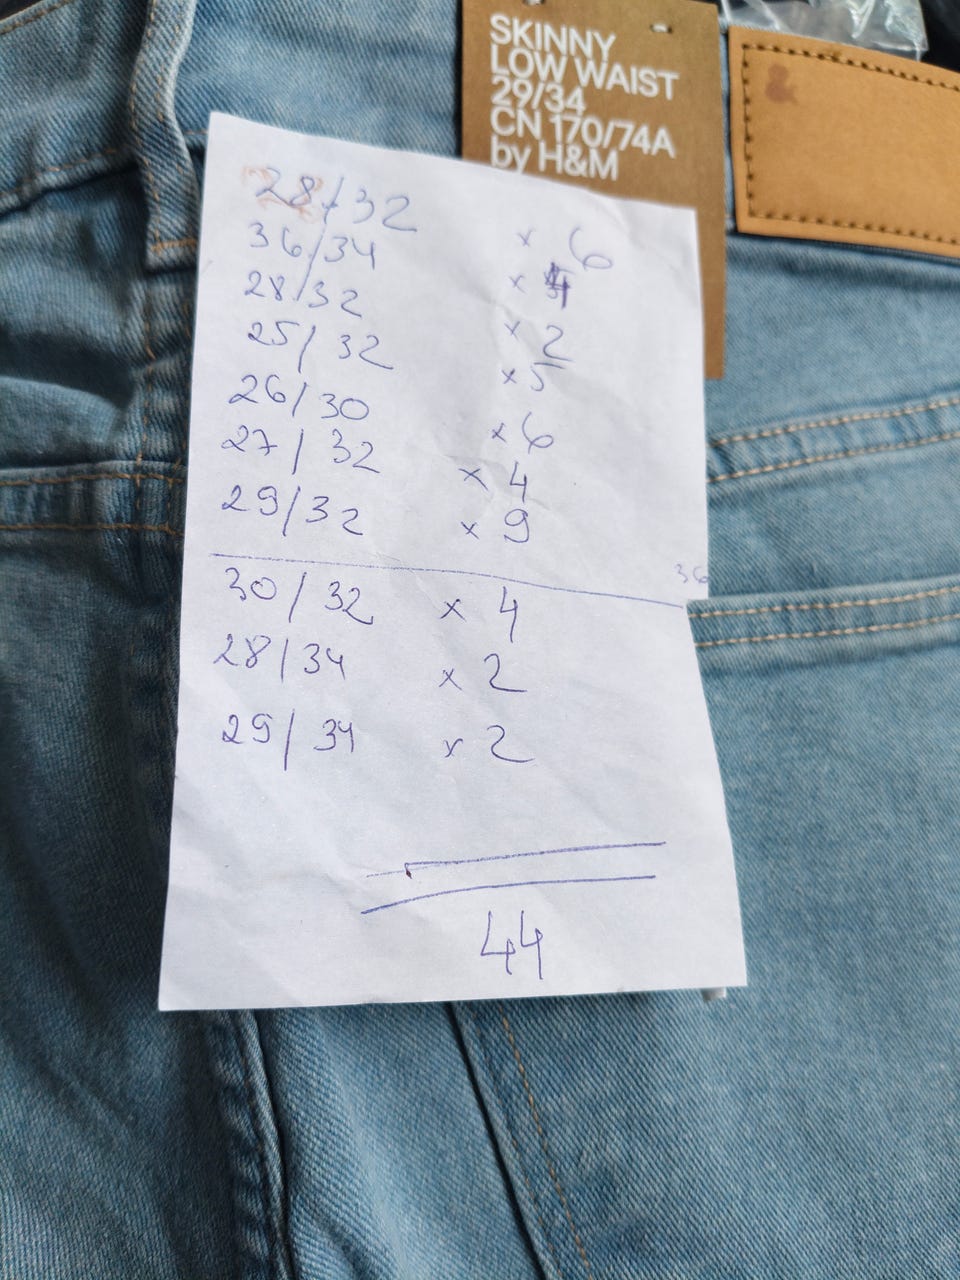 SKINNY
LOW WAIST
29/34
CN 170/74A
by H&M
28/32 × 6
36/34 × 4
28/32 × 2
25/32 × 5
26/30 × 6
27/32 × 4
29/32 × 9
36
30/32 × 4
28/34 × 2
29/34 × 2
44